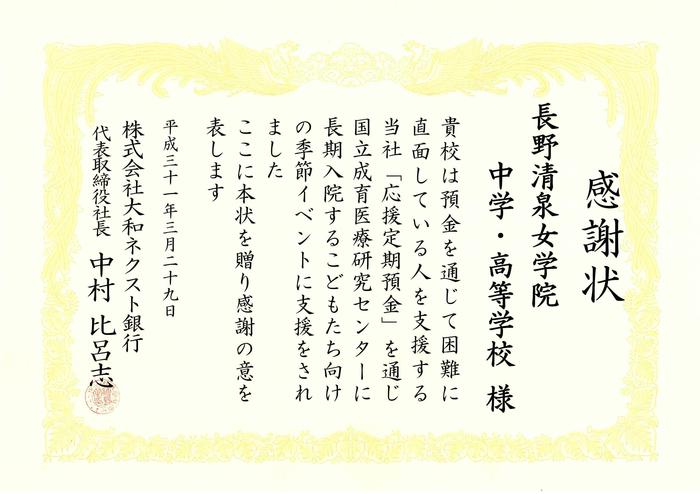 感謝状
長野清泉女学院
中学・高等学校 様
貴校は預金を通じて困難に
直面している人を支援する
当社「応援定期預金」を通じ
国立成育医療研究センターに
長期入院するこどもたち向け
の季節イベントに支援をされ
ました
ここに本状を贈り感謝の意を
表します
平成三十一年三月二十九日
株式会社大和ネクスト銀行
代表取締役社長 中村 比呂志